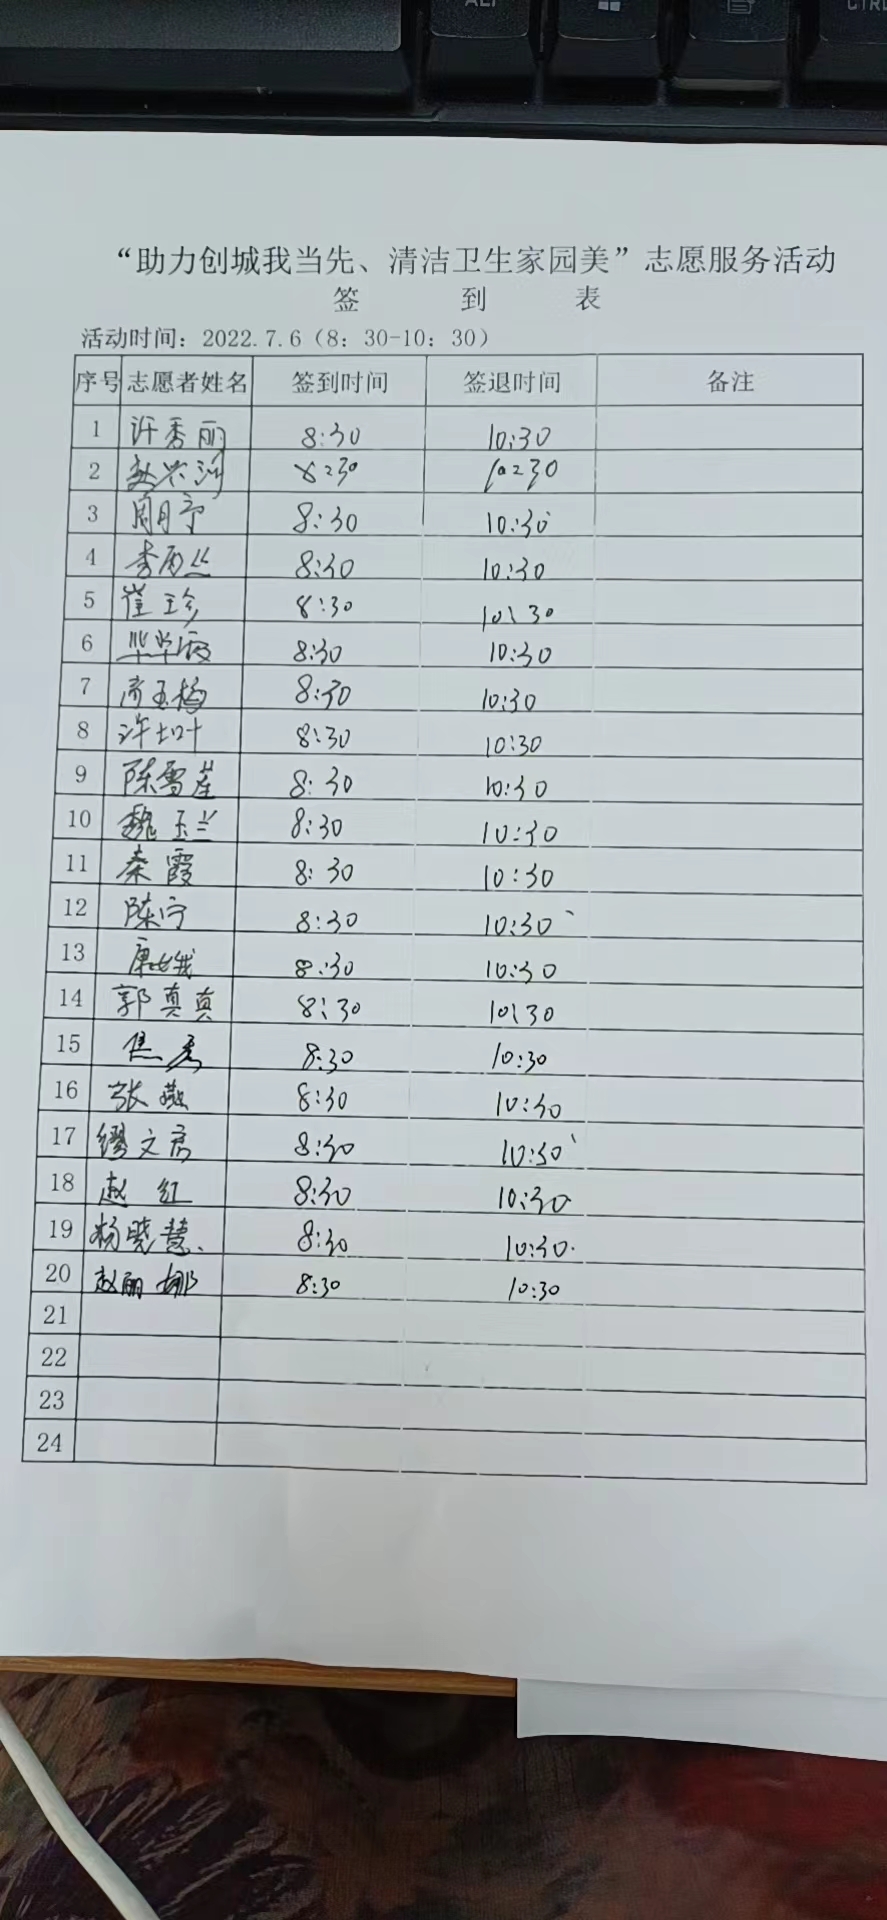 “助力创城我当先、清洁卫生家园美”志愿服务活动
签 到 表
活动时间：2022.7.6（8：30-10：30）
序号 志愿者姓名 签到时间 签退时间 备注
1 许秀丽 8:30 10:30
2 赵兴 8:30 10:30
3 周月宁 8:30 10:30
4 李雨丝 8:30 10:30
5 崔珍 8:30 10:30
6 8:30 10:30
7 玉梅 8:30 10:30
8 许叶 8:30 10:30
9 陈雪莲 8:30 10:30
10 魏玉兰 8:30 10:30
11 秦霞 8:30 10:30
12 陈宁 8:30 10:30
13 康娥 8:30 10:30
14 郭真真 8:30 10:30
15 焦 8:30 10:30
16 张敏 8:30 10:30
17 缪文君 8:30 10:30
18 赵红 8:30 10:30
19 杨晓慧 8:30 10:30
20 赵丽娜 8:30 10:30
21
22
23
24